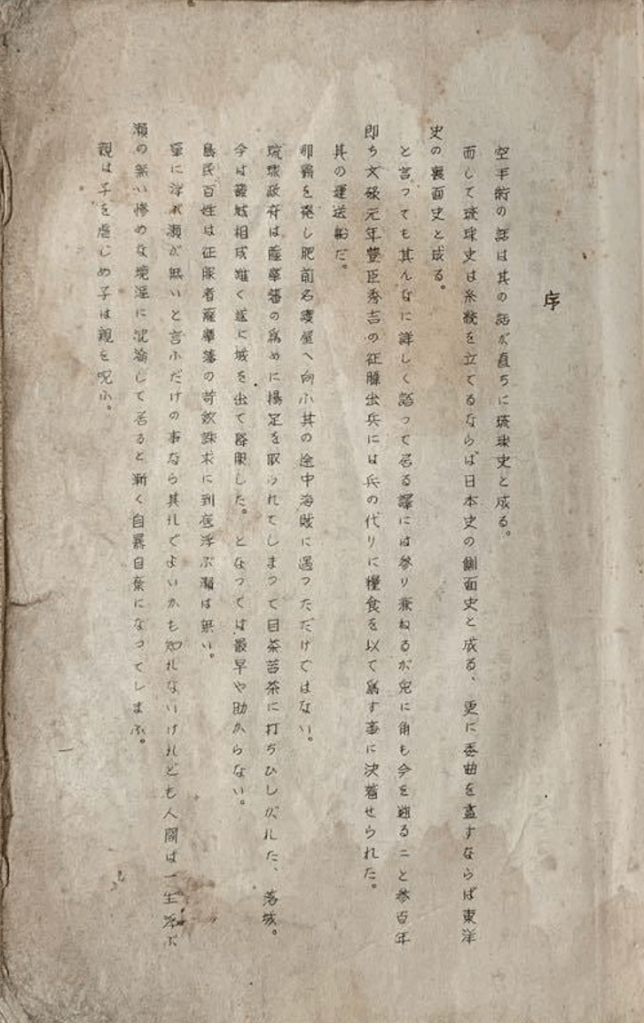 序
空手術の話は其の話が直ちに琉球史と成る。
而して琉球史は系統を立てるならば日本史の側面史と成る、更に委曲を盡すならば東洋
史の裏面史と成る。
と言っても其んなに詳しく語って居る譯には参り兼ねるが兎に角も今を遡ること参百年
即ち文禄元年豐臣秀吉の征韓出兵には兵の代りに糧食を以て為す事に決着せられた。
其の運送船だ。
那覇を発し肥前名護屋へ向ふ其の途中海賊に遇っただけではない。
琉球政府は薩摩藩の為めに揚足を取られてしまって目茶苦茶に打ちひしがれた、落城。
今は籠城相成難く遂に城を出て降服した。となっては最早や助からない。
島民百姓は征服者薩摩藩の苛斂誅求に到底浮ぶ瀬は無い。
單に浮ぶ瀬が無いと言ふだけの事なら其れでよいかも知れないけれども人間は一生浮ぶ
瀬の無い惨めな境涯に沈淪して居ると漸く自暴自棄になってしまふ。
親は子を虐じめ子は親を呪ふ。
一